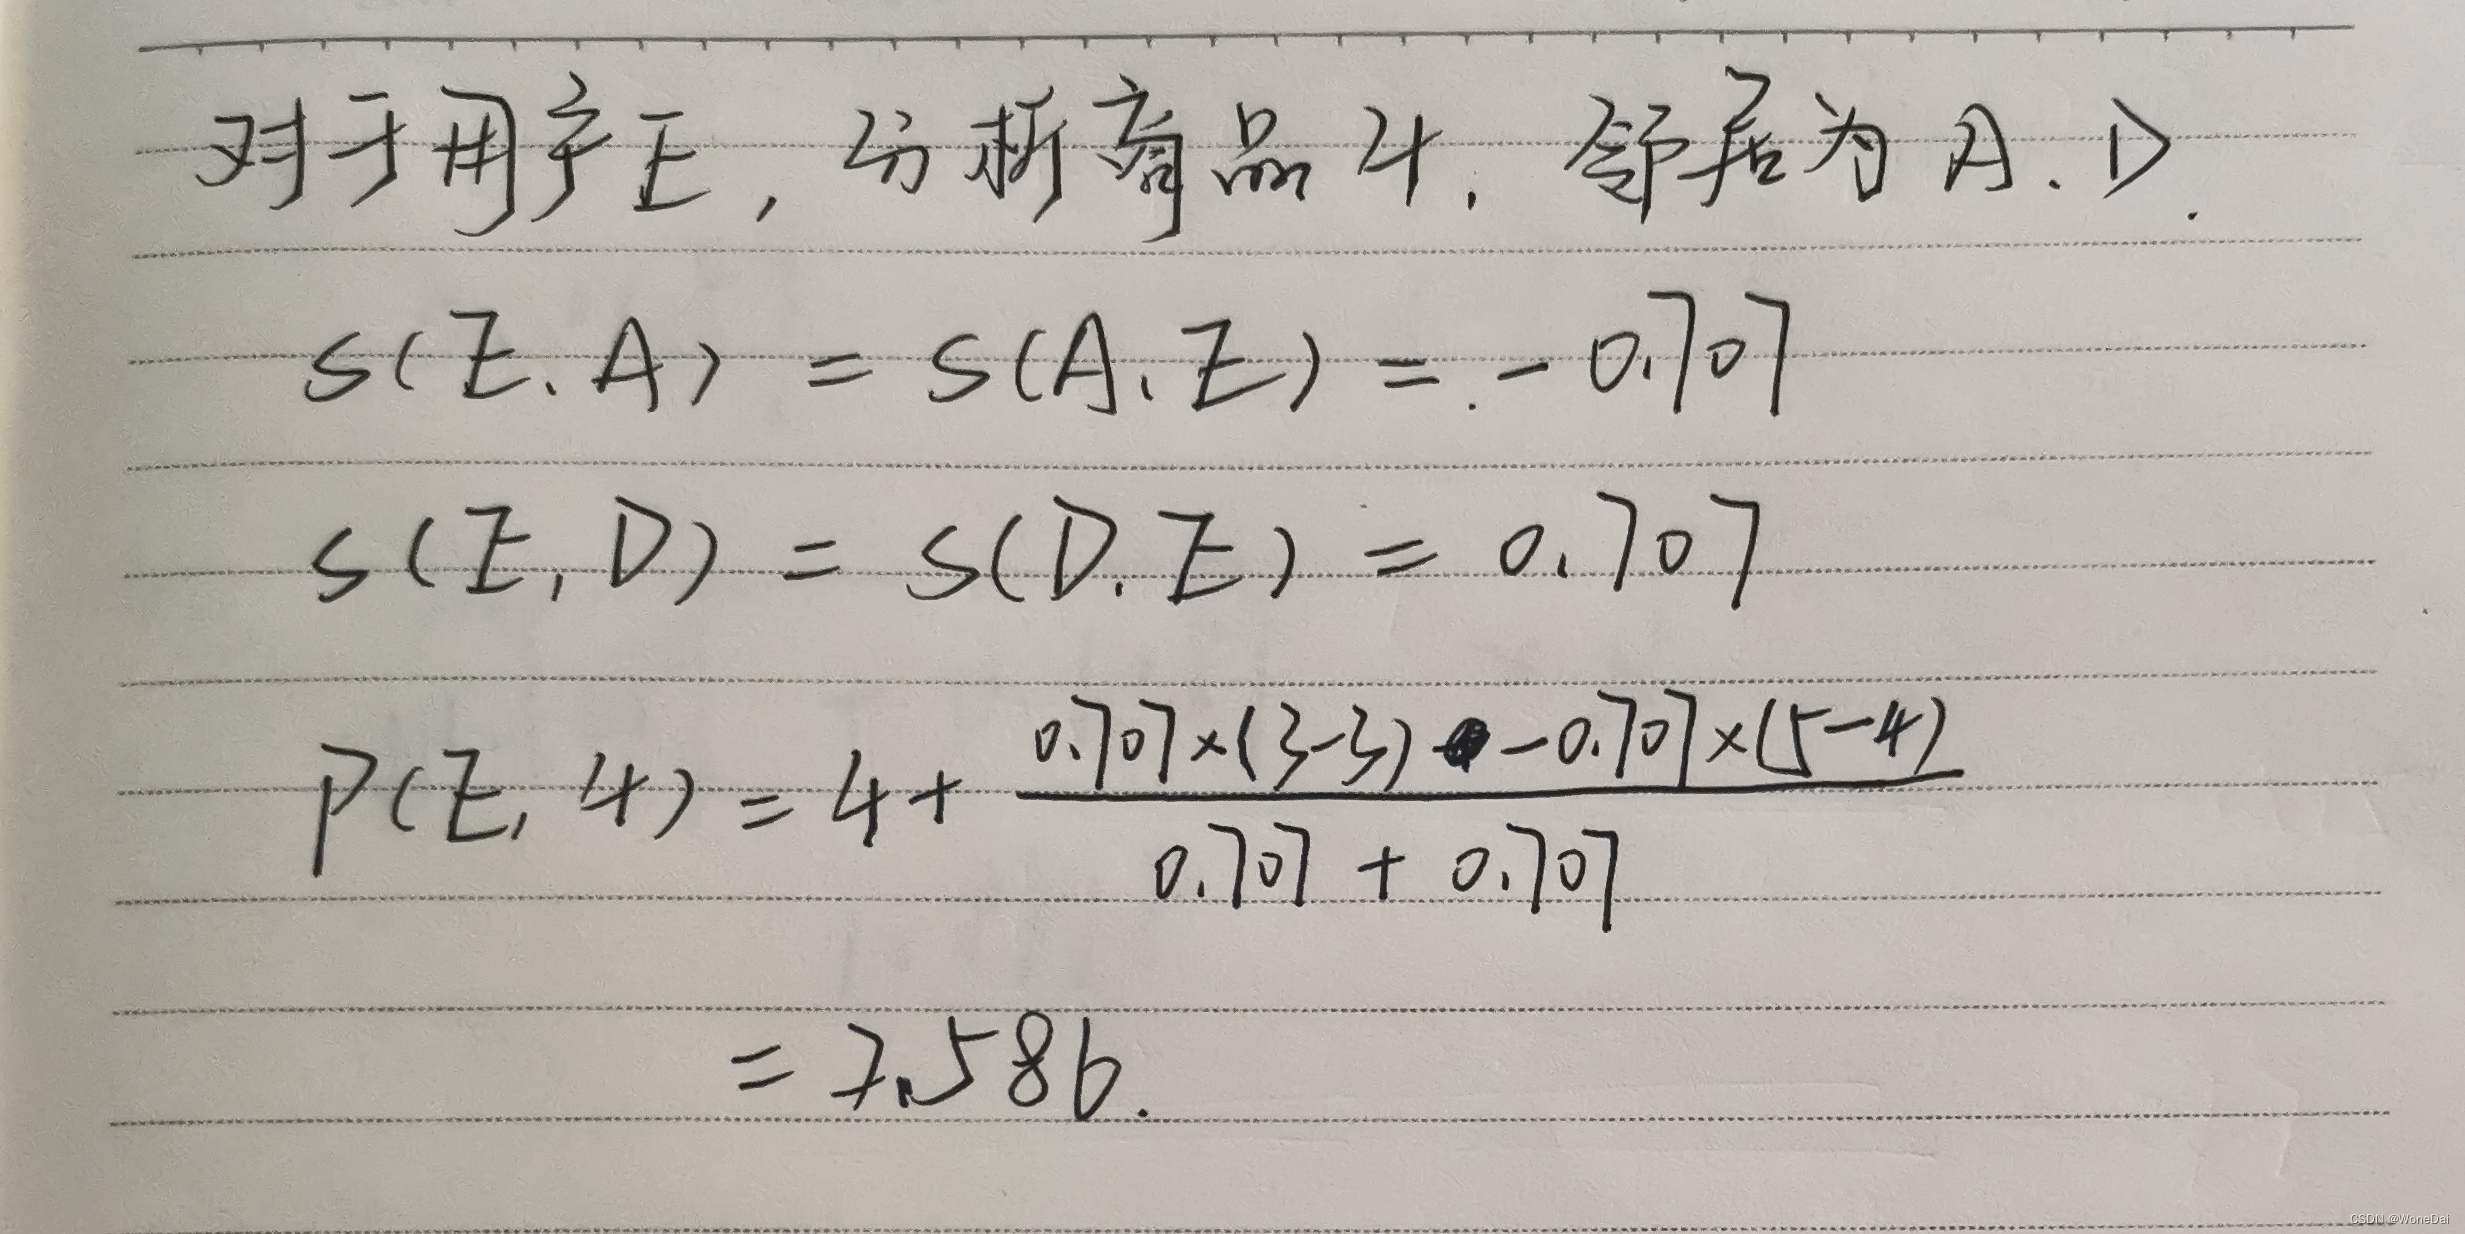 对于用户E，分析商品4，邻居为A、D.
S(E、A) = S(A、E) = -0.707
S(E, D) = S(D、E) = 0.707
P(E, 4) = 4 + (0.707×(3-3) -0.707×(5-4)) / (0.707 + 0.707)
= 7.586.
CSDN @WoneDai